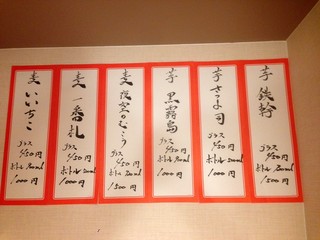 芋 鉄幹
グラス
450円
ボトル 900ml
1500円
芋 さつま司
グラス
450円
ボトル 900ml
1000円
芋 黒霧島
グラス
450円
ボトル 900ml
1000円
麦 夜空のむこう
グラス
450円
ボトル 900ml
1500円
麦 一番札
グラス
450円
ボトル 900ml
1000円
麦 いいちこ
グラス
450円
ボトル 900ml
1000円